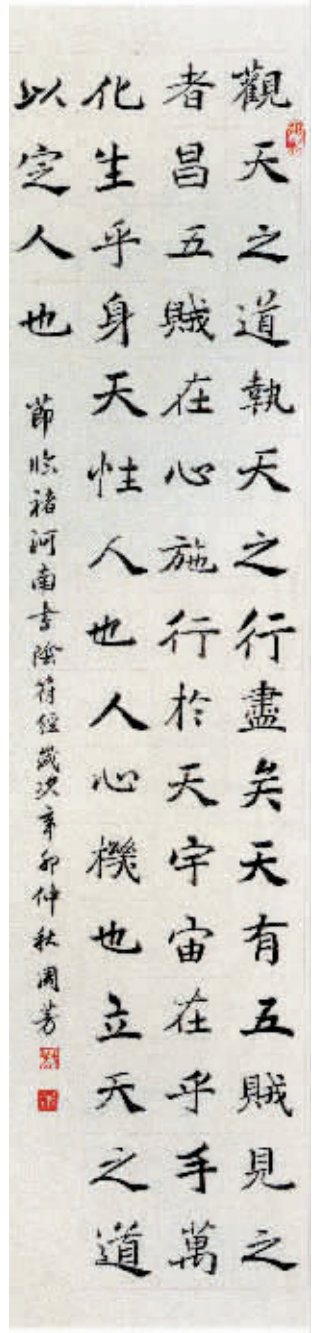 觀天之道執天之行盡矣天有五賊見之
者昌五賊在心施行於天宇宙在乎手萬
化生乎身天性人也人心機也立天之道
以定人也
節臨褚河南書陰符經歲次辛卯仲秋周芳